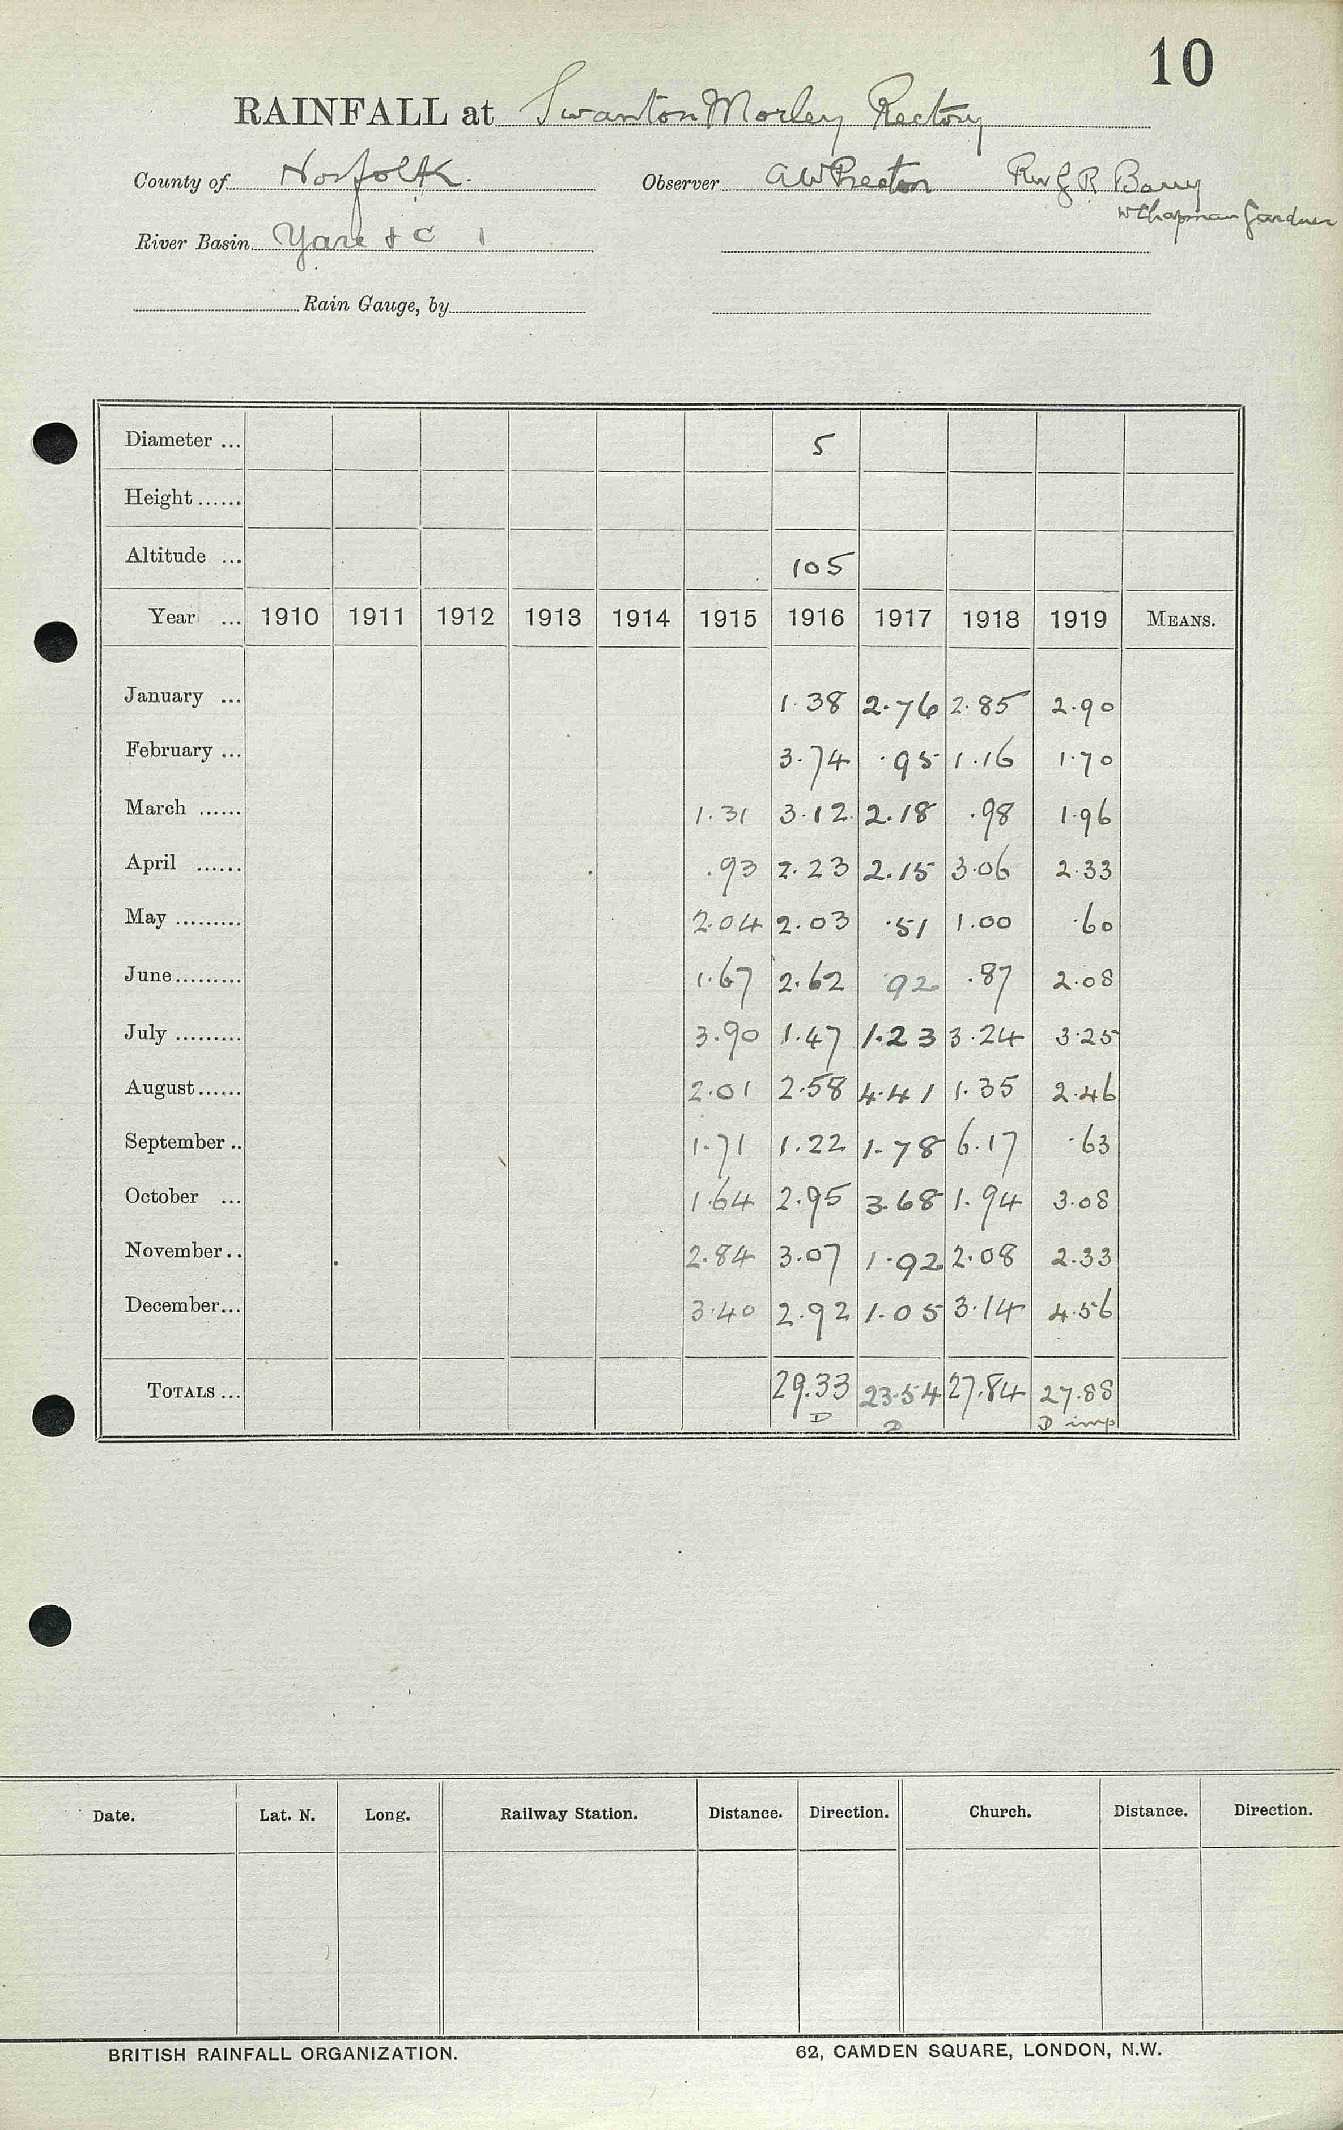 10
RAINFALL at Swanton Morley Rectory
County of Norfolk. Observer A W Preston Rev G R Barry
W Chapman Gardner
River Basin Yare & C 1
Rain Gauge, by
Diameter ... 5
Height ......
Altitude ... 105
Year ... 1910 1911 1912 1913 1914 1915 1916 1917 1918 1919 MEANS.
January ... 1.38 2.76 2.85 2.90
February ... 3.74 .95 1.16 1.70
March ...... 1.31 3.12 2.18 .98 1.96
April ...... .93 2.23 2.15 3.06 2.33
May ......... 2.04 2.03 .51 1.00 .60
June ......... 1.67 2.62 92 .87 2.08
July ......... 3.90 1.47 1.23 3.24 3.25
August ...... 2.01 2.58 4.41 1.35 2.46
September .. 1.71 1.22 1.78 6.17 .63
October ... 1.64 2.95 3.68 1.94 3.08
November .. 2.84 3.07 1.92 2.08 2.33
December ... 3.40 2.92 1.05 3.14 4.56
TOTALS ... 29.33 23.54 27.84 27.88
D D D imp
Date. Lat. N. Long. Railway Station. Distance. Direction. Church. Distance. Direction.
BRITISH RAINFALL ORGANIZATION. 62, CAMDEN SQUARE, LONDON, N.W.